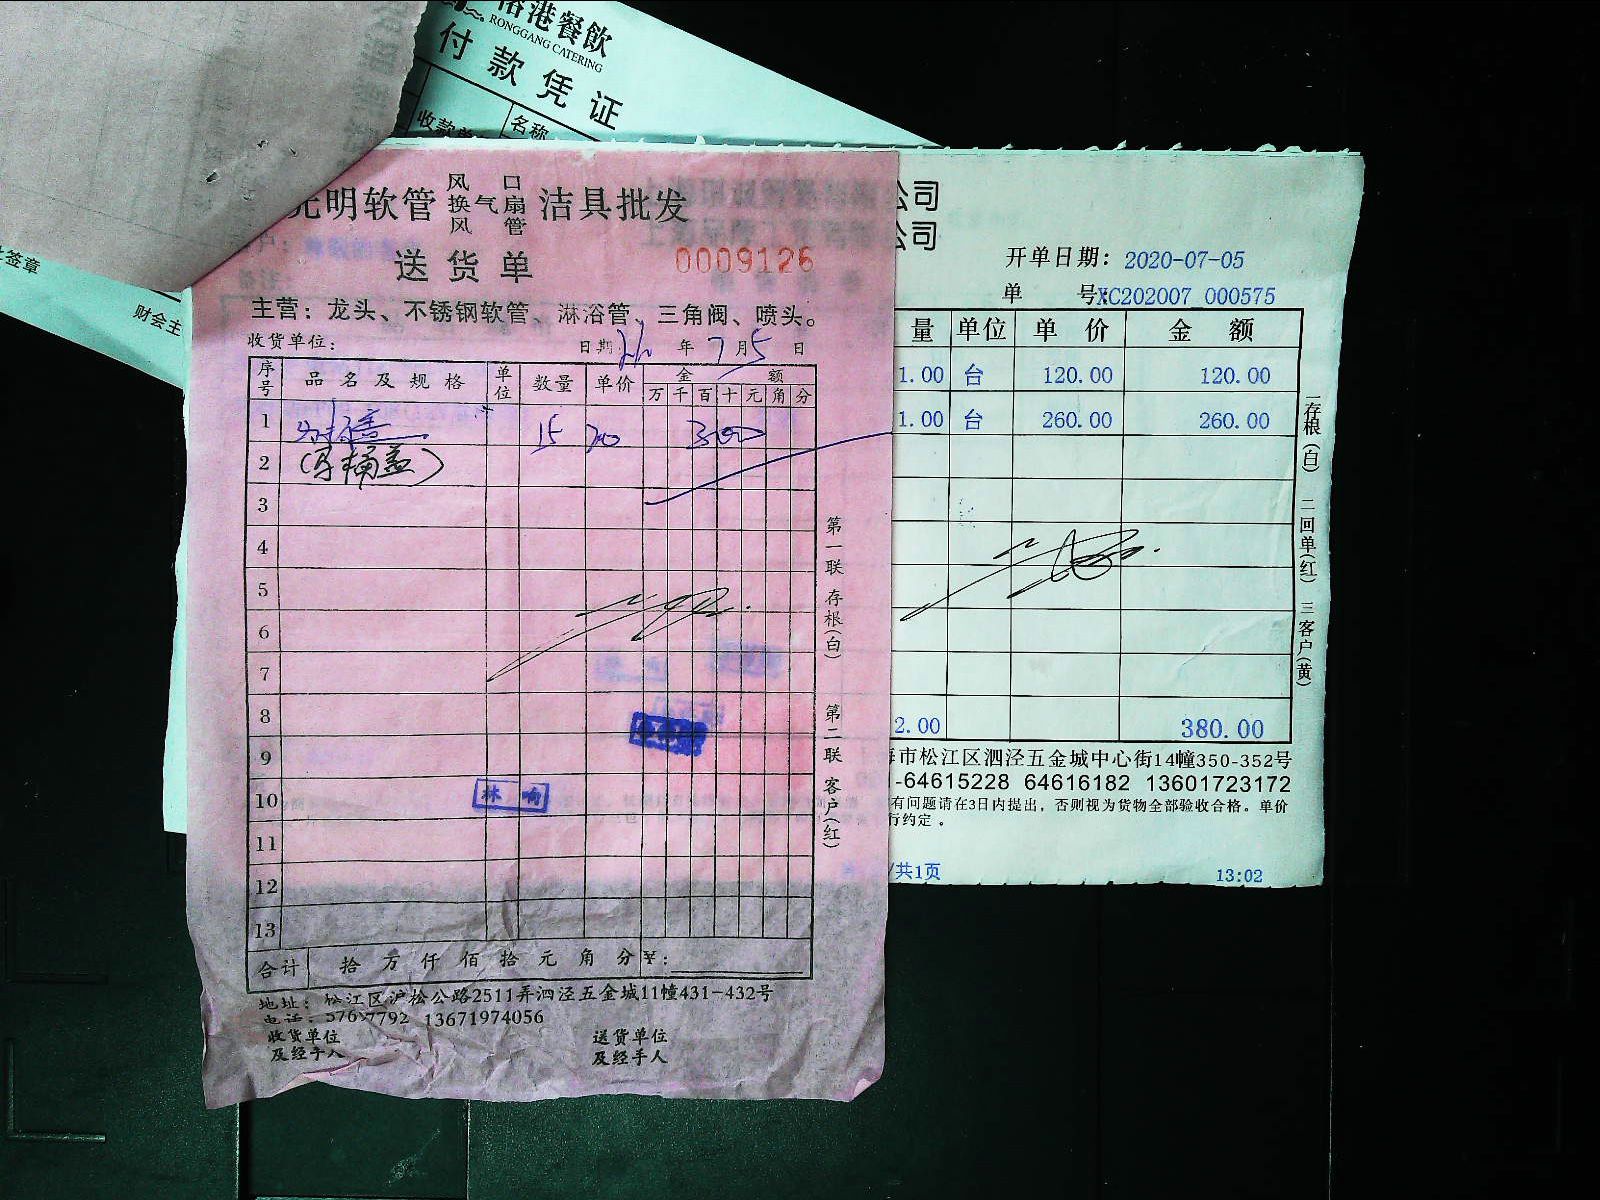 港餐飲
RONGGANG CATERING
付款凭证
收款单
名称
签章
财会主
光明软管 风口 换气扇 风管 洁具批发
送货单
0009126
主营：龙头、不锈钢软管、淋浴管、三角阀、喷头。
收货单位：
日期 年 7 月 5 日
序号 品名及规格 单位 数量 单价 金额
万 千 百 十 元 角 分
1 15 20 300
2 (马桶盖)
3
4
5
6
7
8
9
10
11
12
13
林响
合计 拾 万 仟 佰 拾 元 角 分 ¥：
地址：松江区沪松公路2511弄泗泾五金城11幢431-432号
电话：57627792 13671974056
收货单位
及经手人
送货单位
及经手人
第一联 存根(白) 第二联 客户(红)
公司
公司
开单日期：2020-07-05
单 号XC202007 000575
量 单位 单价 金额
1.00 台 120.00 120.00
1.00 台 260.00 260.00
2.00 380.00
海市松江区泗泾五金城中心街14幢350-352号
-64615228 64616182 13601723172
有问题请在3日内提出，否则视为货物全部验收合格。单价
行约定。
/共1页
13:02
一存根(白) 二回单(红) 三客户(黄)